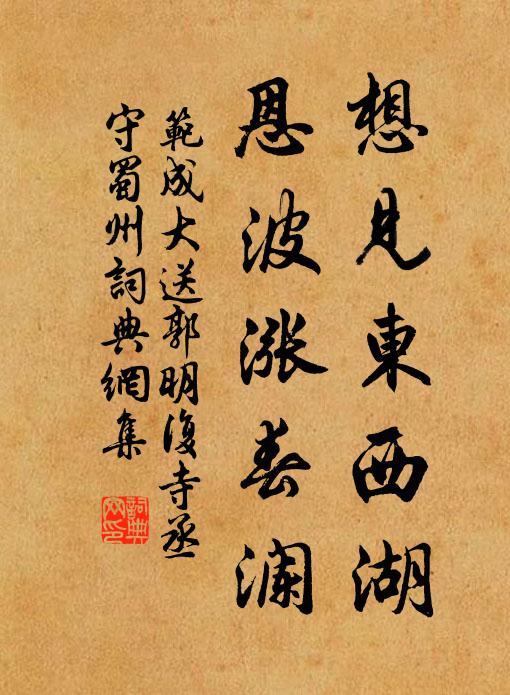 想見東西湖
恩波漲春瀾
範成大送郭明復寺丞
守蜀州詞典網集
詞典
网印